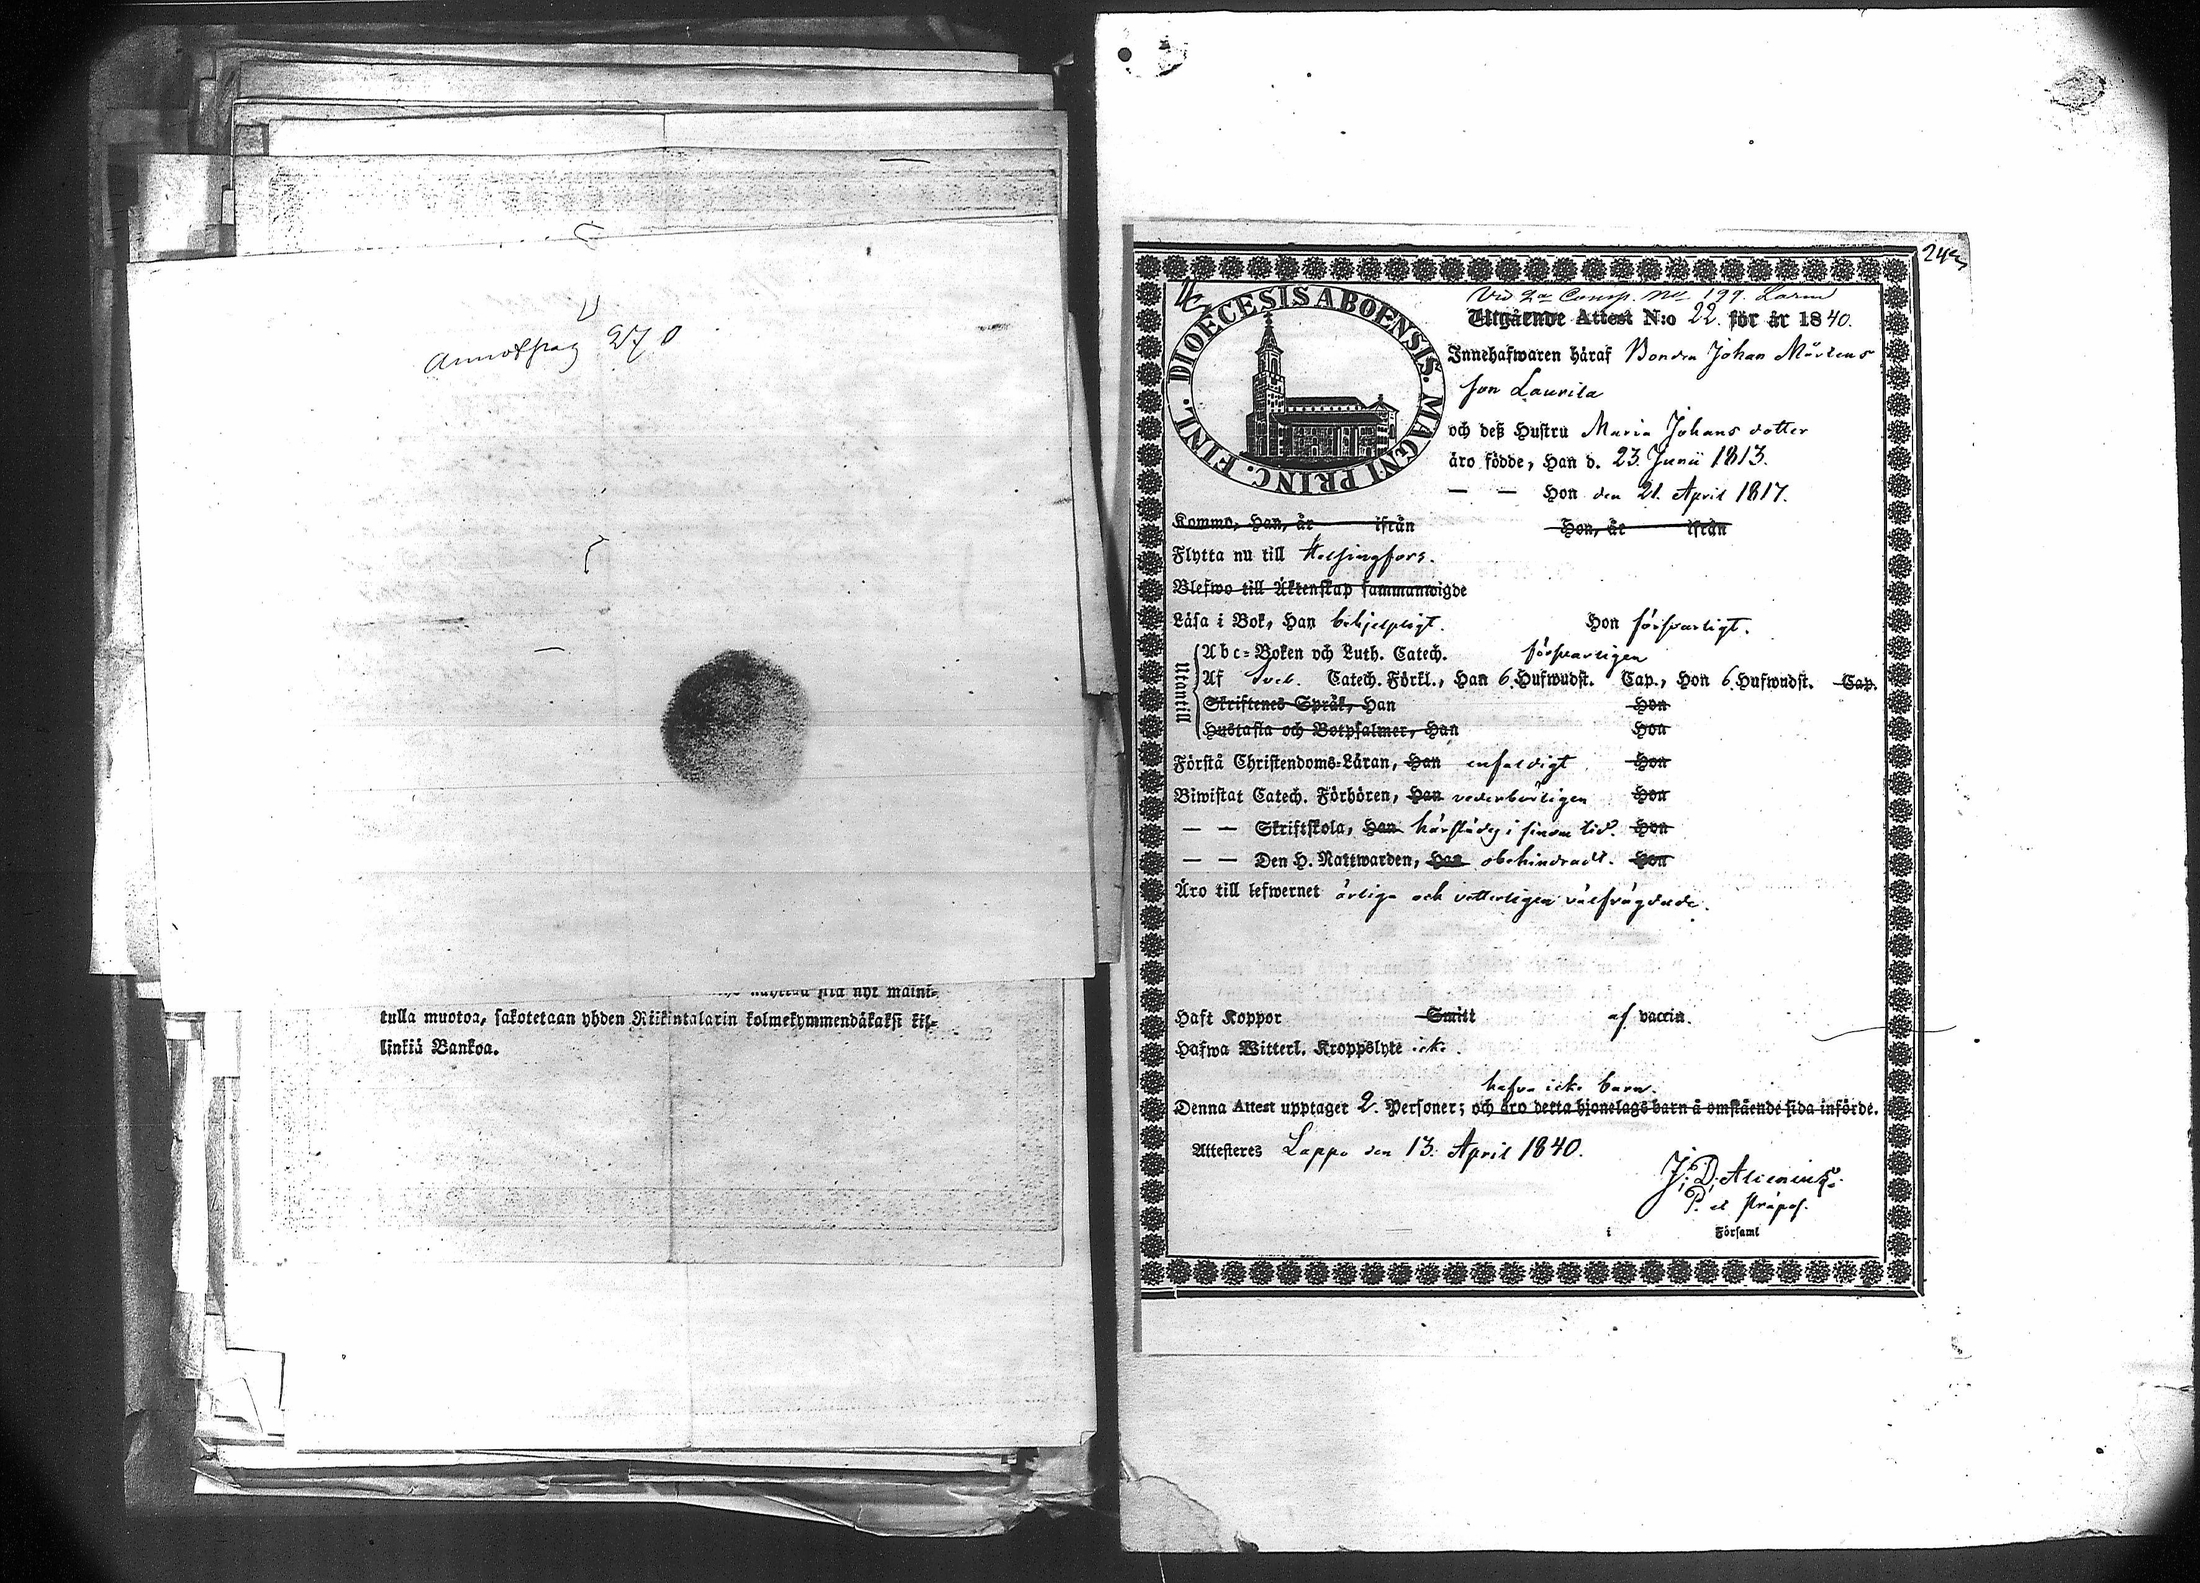 270
tulla muotoa, sakotetaan yhden Riikintalarin kolmekymmendäkaksi kil-
linkiä Bankoa.
DIOECESIS ABOENSIS. MAGNI PRINC. FINL.
Utgående Attest N:o 22. för år 1840.
Innehafwaren häraf Bonden Johan Mårtens
son Laurila
och deß Hustru Maria Johans dotter
äro födde, Han d. 23. Junii 1813.
— — Hon den 21. April 1817.
Kommo, Han, år ifrån Hon, år ifrån
Flytta nu till Helsingfors.
Blefwo till Äktenskap sammanwigde
Läsa i Bok, Han behjelpligt. Hon försvarligt.
Utantill
Abc-Boken och Luth. Catech. försvarligen
Af Sveb. Catech. Förkl., Han 6. Hufwudst. Cap., Hon 6. Hufwudst. Cap.
Skriftenes Språk, Han Hon
Hustafla och Botpsalmer, Han Hon
Förstå Christendoms-Läran, Han enfaldigt Hon
Biwistat Catech. Förhören, Han vederbörligen Hon
— — Skriftskola, Han härstädes i sinom tid. Hon
— — Den H. Nattwarden, Han obehindradt. Hon
Äro till lefwernet ärliga och välfrägdade.
Haft Koppor Smitt af vaccin.
Hafwa Witterl. Kroppslyte icke.
hafva icke barn.
Denna Attest upptager 2. Personer; och äro detta hjonelags barn å omstående sida införde.
Attesteres Lappo den 13. April 1840.
J. D. Alcenius.
P. et Præpos.
i Församl